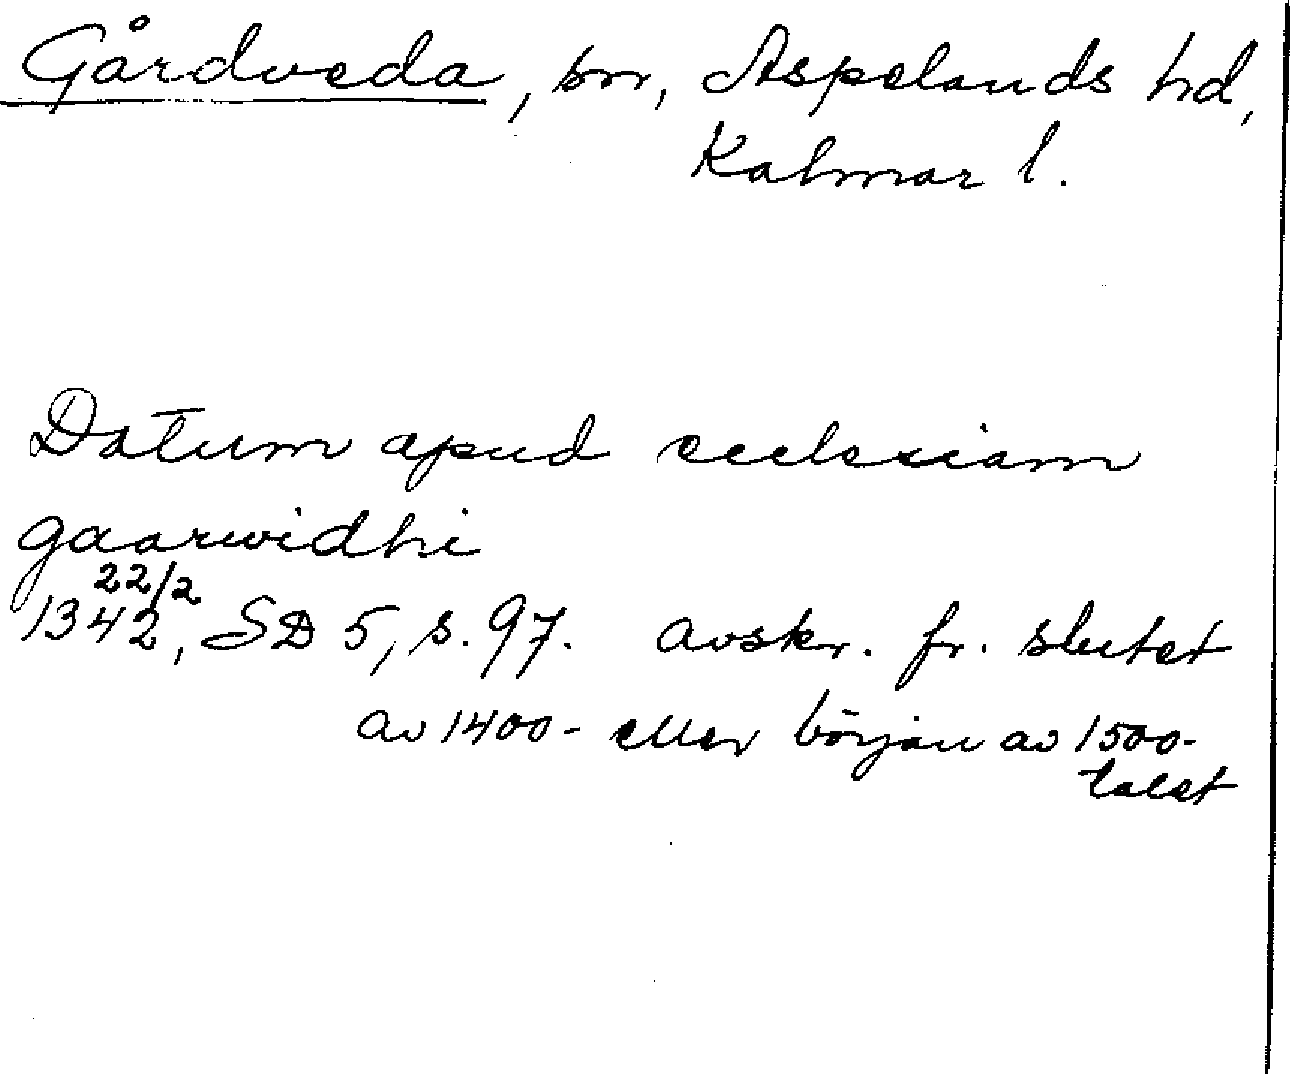 Gårdveda, sn, Aspelands hd,
Kalmar l.
Datum apud ecclesiam
gaarwidhi
22/2
1342, SD 5, s. 97. Avskr. fr. slutet
av 1400- eller början av 1500-
talet